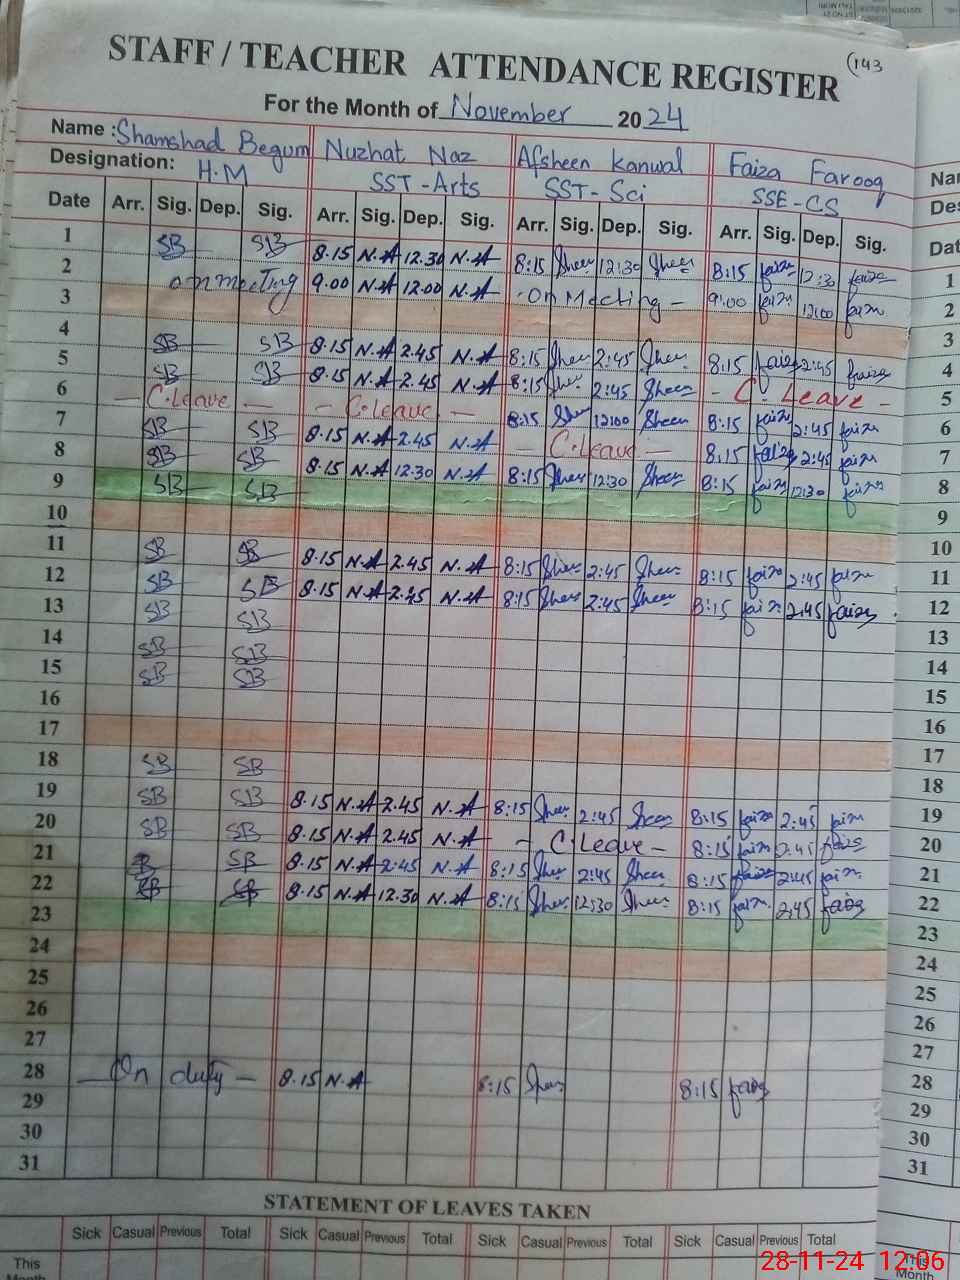 143
STAFF / TEACHER ATTENDANCE REGISTER
For the Month of November 2024
Name : Shamshad Begum Nuzhat Naz Afsheen Kanwal Faiza Farooq
Designation: H.M SST-Arts SST-Sci SSE-CS
Date Arr. Sig. Dep. Sig. Arr. Sig. Dep. Sig. Arr. Sig. Dep. Sig. Arr. Sig. Dep. Sig.
1 SB SB 8.15 N.A 12.30 N.A 8:15 Sheen 12:30 Sheen 8:15 faiza 12:30 faiza
2 on meeting 9.00 N.A 12.00 N.A - On Meeting - 9:00 faiza 12:00 faiza
3
4 SB SB 8.15 N.A 2.45 N.A 8:15 Sheen 2:45 Sheen 8:15 faiza 2:45 faiza
5 SB SB 8.15 N.A 2.45 N.A 8:15 Sheen 2:45 Sheen - C. Leave -
6 - C.leave - - C.leave - 8:15 Sheen 12:00 Sheen 8:15 faiza 2:45 faiza
7 SB SB 8.15 N.A 2.45 N.A - C.Leave - 8:15 faiza 2:45 faiza
8 SB SB 8.15 N.A 12.30 N.A 8:15 Sheen 12:30 Sheen 8:15 faiza 12:30 faiza
9 SB SB
10
11 SB SB 8.15 N.A 2.45 N.A 8:15 Sheen 2:45 Sheen 8:15 faiza 2:45 faiza
12 SB SB 8.15 N.A 2.45 N.A 8:15 Sheen 2:45 Sheen 8:15 faiza 2:45 faiza
13 SB SB
14 SB SB
15 SB SB
16
17
18 SB SB
19 SB SB 8.15 N.A 2.45 N.A 8:15 Sheen 2:45 Sheen 8:15 faiza 2:45 faiza
20 SB SB 8.15 N.A 2.45 N.A - C.Leave - 8:15 faiza 2:45 faiza
21 SB SB 8.15 N.A 2:45 N.A 8:15 Sheen 2:45 Sheen 8:15 faiza 2:45 faiza
22 SB SB 8.15 N.A 12.30 N.A 8:15 Sheen 12:30 Sheen 8:15 faiza 2,45 faiza
23
24
25
26
27
28 - On duty - 8.15 N.A 8:15 Sheen 8:15 faiza
29
30
31
STATEMENT OF LEAVES TAKEN
Sick Casual Previous Total Sick Casual Previous Total Sick Casual Previous Total Sick Casual Previous Total
This Month
Nar
Des
Dat
1
2
3
4
5
6
7
8
9
10
11
12
13
14
15
16
17
18
19
20
21
22
23
24
25
26
27
28
29
30
31
This Month
28-11-24 12:06